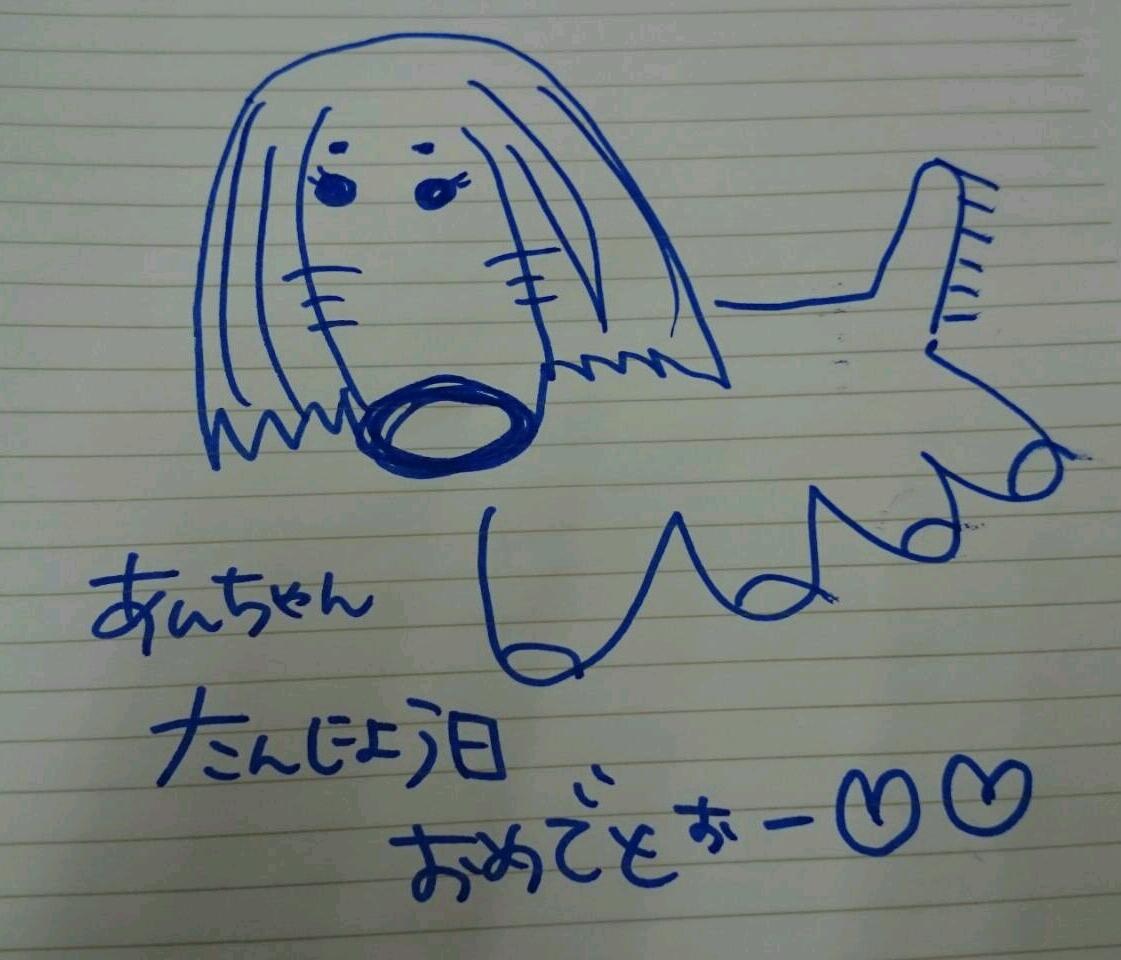 あんちゃん
たんじょう日
おめでとぉー♡♡